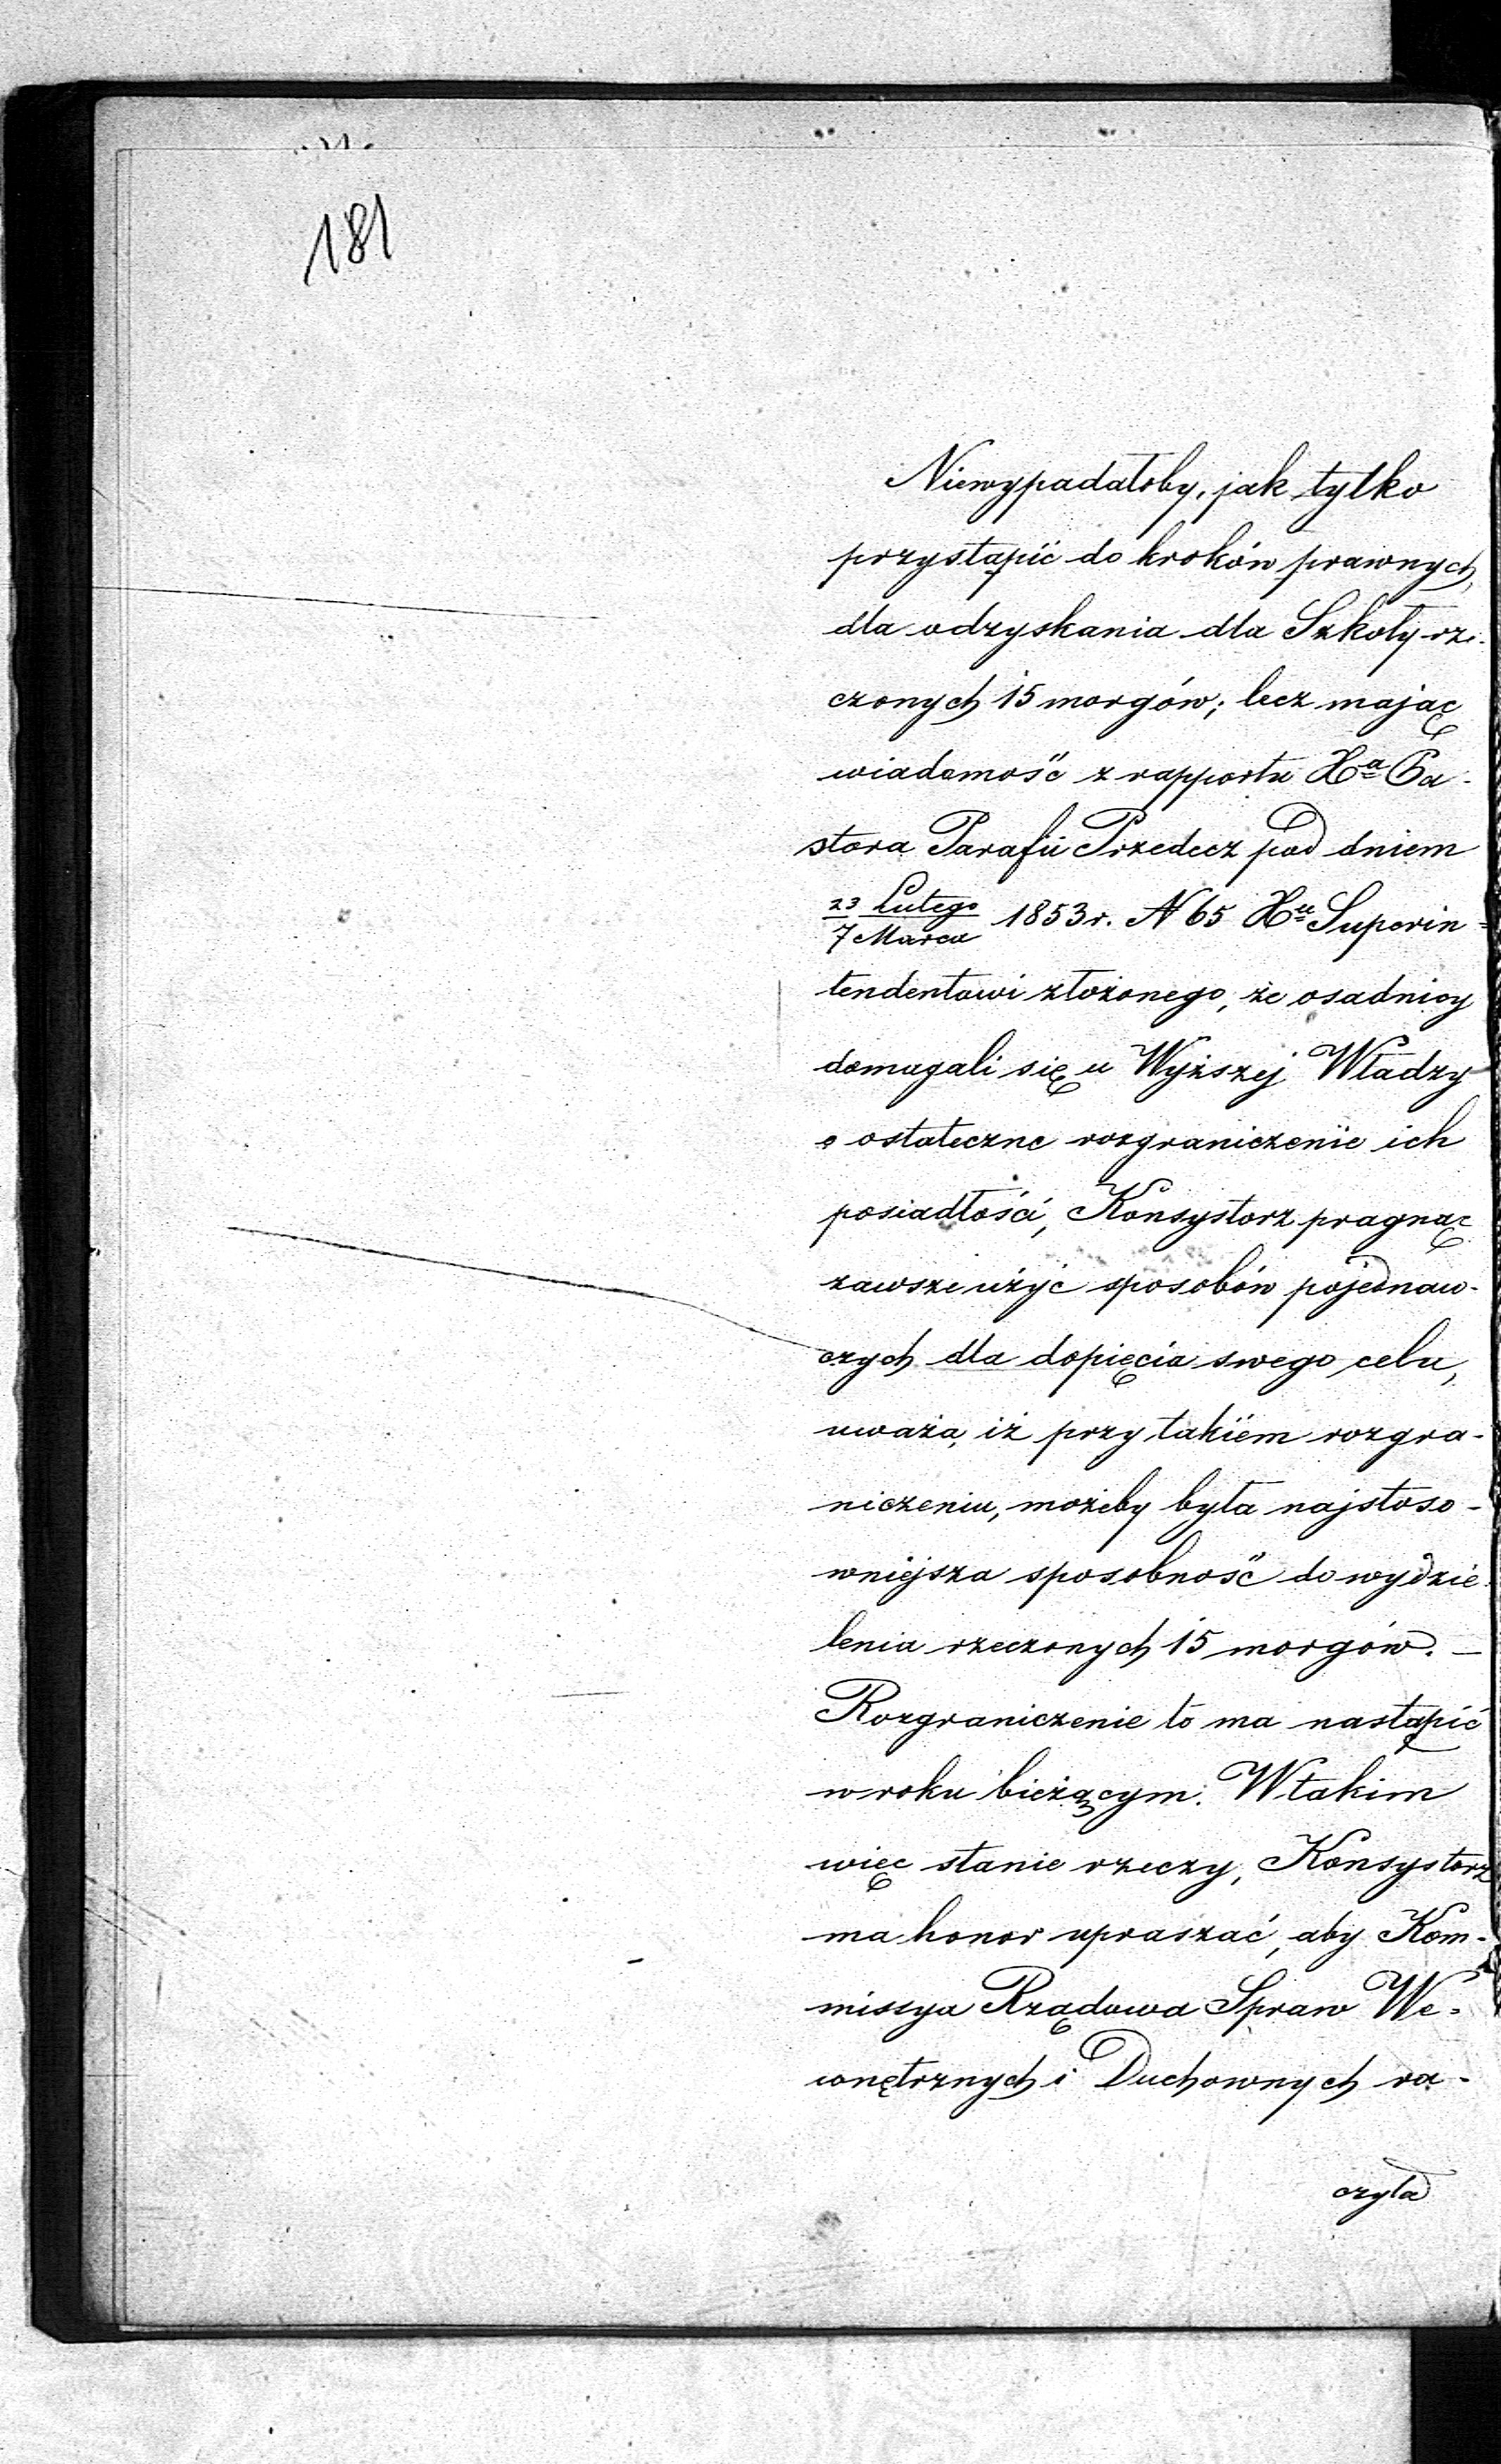 181
Niewypadałoby, jak tylko
przystąpić do kroków prawnych,
dla odzyskania dla Szkoły rze-
czonych 15 morgów; lecz mając
wiadomość z rapportu Xa Pa-
stora Parafii Przedecz pod dniem
23 Lutego / 7 Marca 1853 r. N 65 Xu Superin=
tendentowi złożonego, że osadnicy
domagali się u Wyższej Władzy
o ostateczne rozgraniczenie ich
posiadłości, Konsystorz pragnąc
zawsze użyć sposobów pojednaw-
czych dla dopięcia swego celu,
uważa, iż przy takiem rozgra-
niczeniu, możeby była najstoso-
wniejsza sposobność do wydzie-
lenia rzeczonych 15 morgów. —
Rozgraniczenie to ma nastąpić
w roku bieżącym. W takim
więc stanie rzeczy, Konsystorz
ma honor upraszać, aby Kom-
missya Rządowa Spraw We-
wnętrznych i Duchownych ra-
czyła